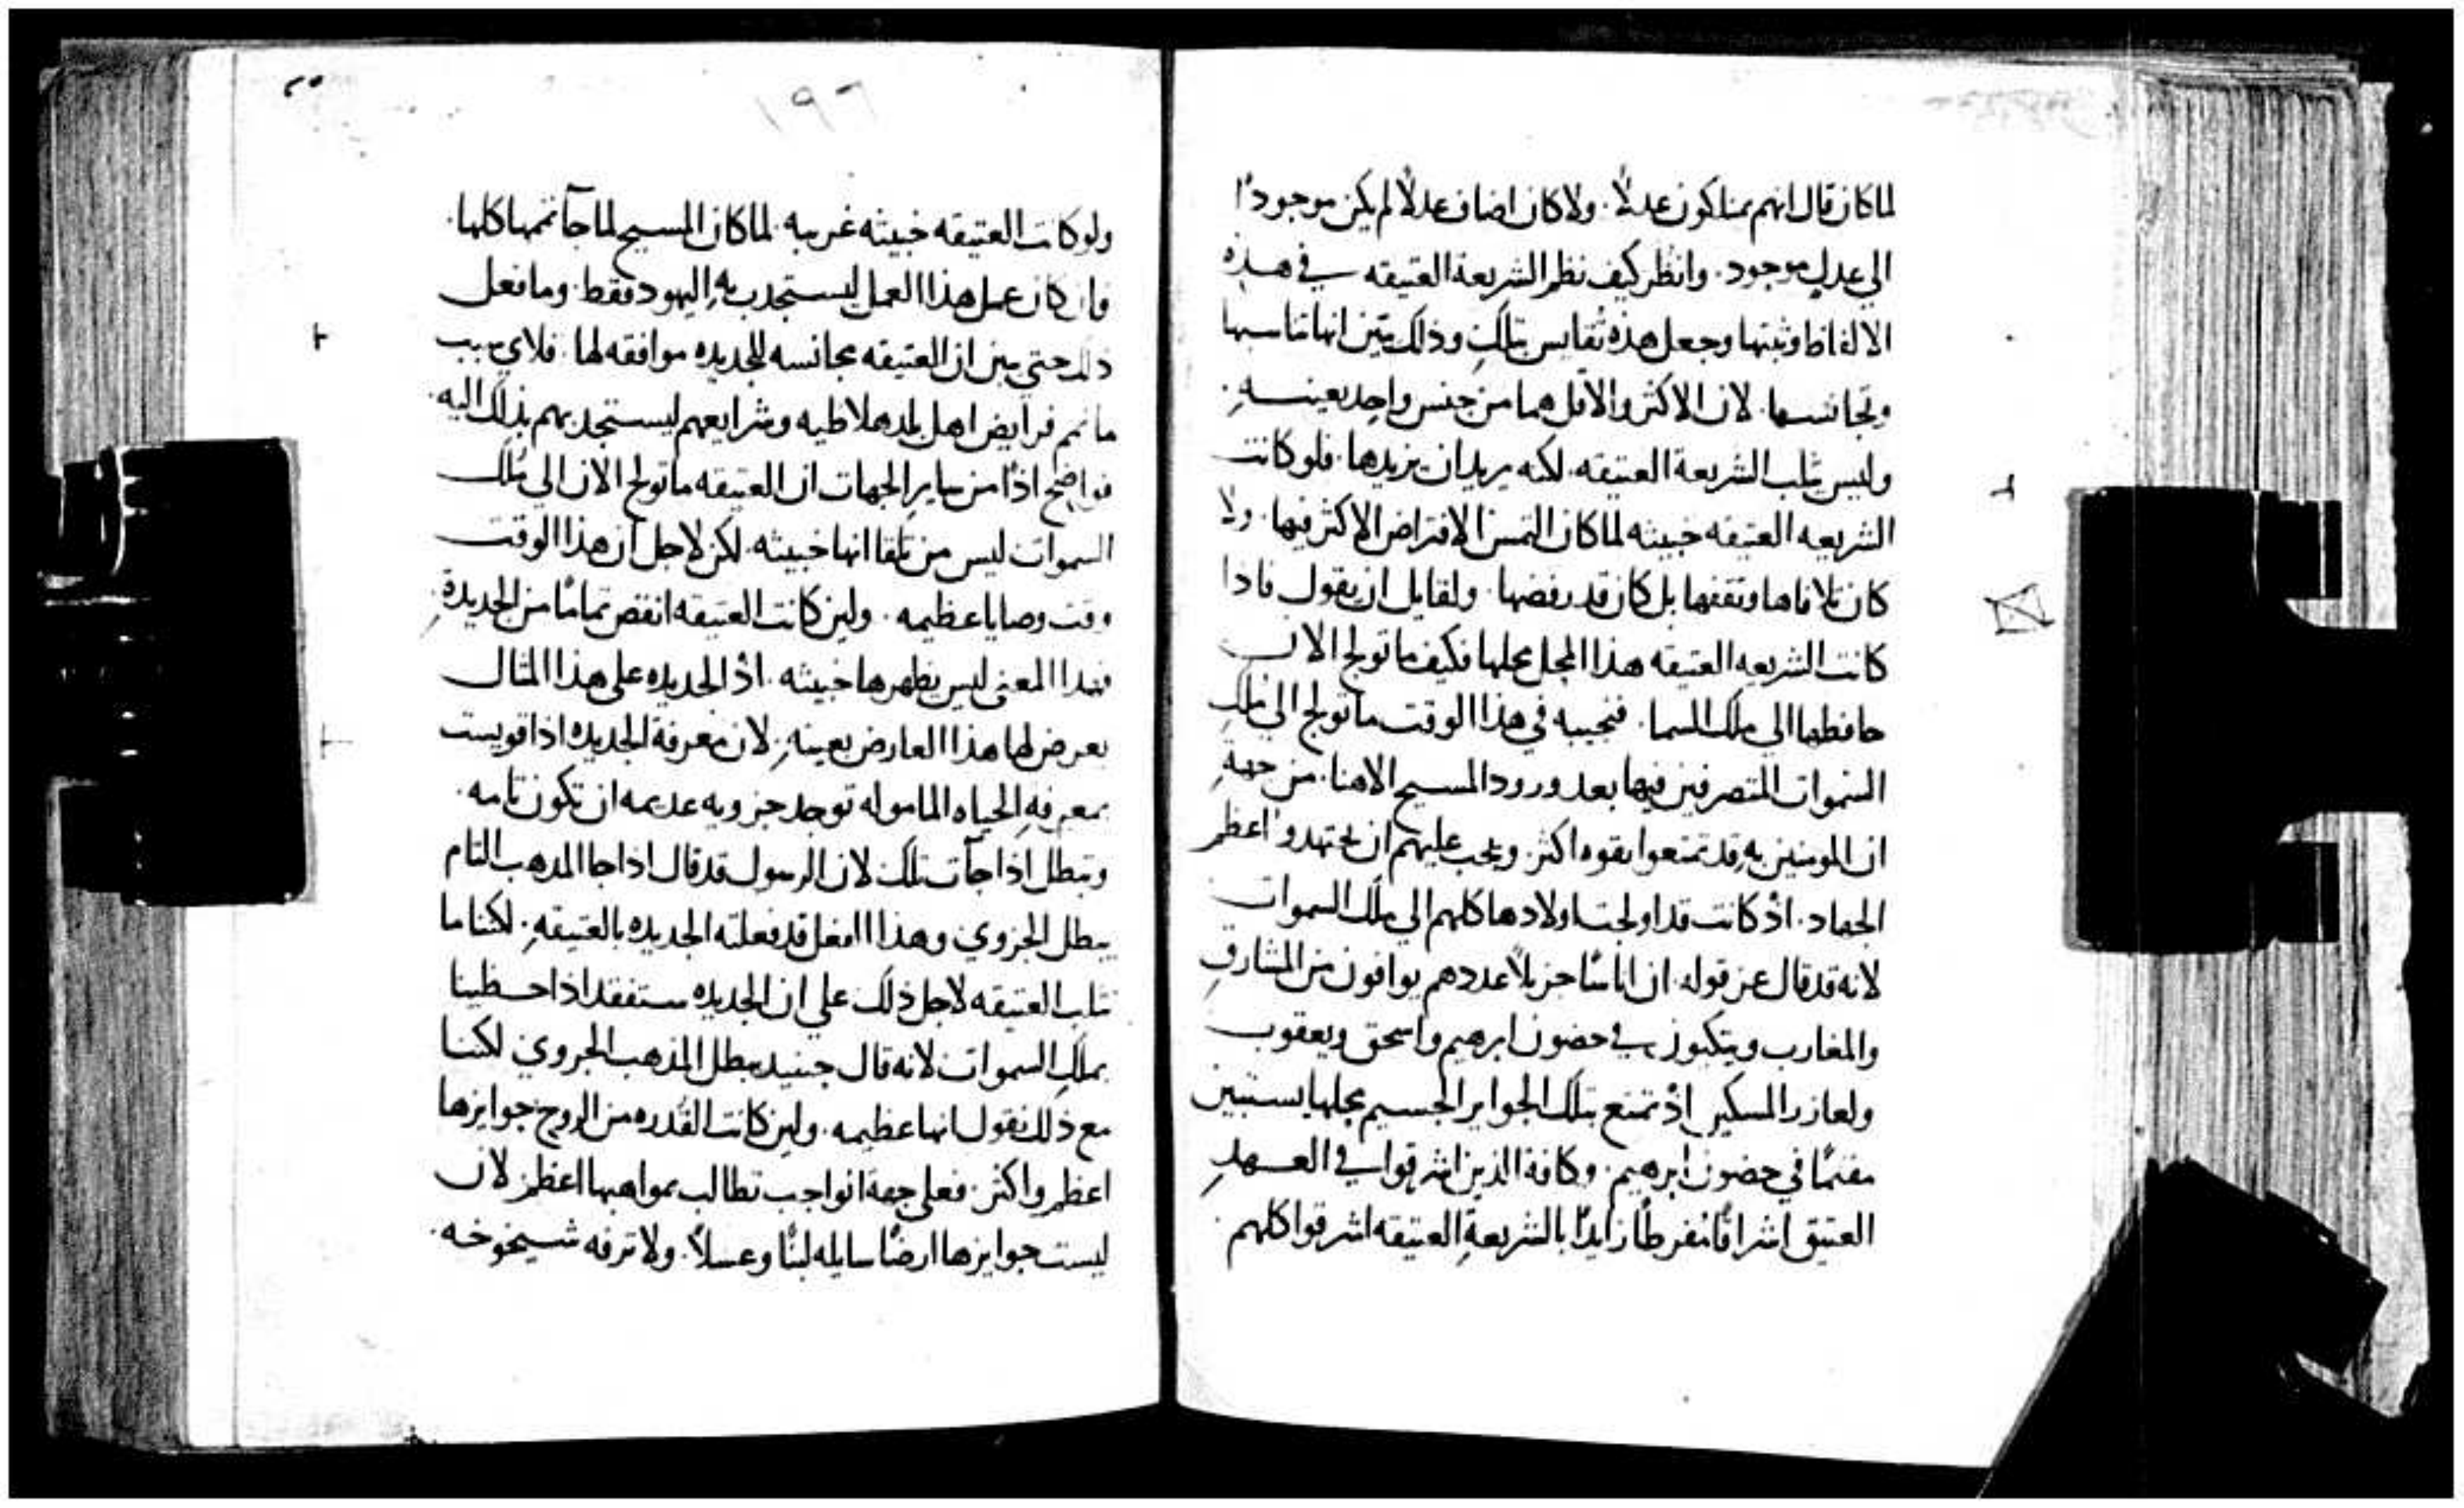 لما كان قال انهم يمتلكون عدلاً. ولا كان اضاف عدلاً لم يكن موجودًا
الي عدلٍ موجود. وانظر كيف نظر الشريعة العتيقه في هذه
الالفاظ وثبتها وجعل هذه تقايس بتلك وذلك يبين انها تناسبها
وتجانسها. لان الاكثر والاقل هما من جنس واحد بعينهِ.
وليس يثلب الشريعة العتيقه. لكنه يريد ان يزيدها. فلو كانت
الشريعه العتيقه خبيثه لما كان التمس الافتراض الاكثر فيها. ولا
كان تلافاها وثقفها بل كان قد رفضها. ولقايل ان يقول فاذا
كانت الشريعه العتيقه هذا المحل محلها فكيف ما تولج الان
حافظها الي ملك السما. فنجيبه في هذا الوقت ما تولج الي ملك
السموات المتصرفين فيها بعد ورود المسيح الاهنا. من جهةِ
ان المومنين بهِ قد تمتعوا بقوه اكثر. ويجب عليهم ان يجتهدوا اعظم
الجهاد. اذ كانت قد اولجت اولادها كلهم الي ملك السموات
لانه قد قال عز قوله. ان اناسًا جزيلاً عددهم يوافون من المشارق
والمغارب ويتكيون في حضون ابرهيم واسحق ويعقوب
ولعازر المسكين اذ تمتع بتلك الجوايز الجسيم محلها يستبين
مقيمًا في حضون ابرهيم. وكافة الذين اشرقوا في العهدِ
العتيق اشراقًا مفرطًا زايدًا بالشريعةِ العتيقه اشرقوا كلهم.
٢٥
١٩٦
ولو كانت العتيقه خبيثه غريبه. لما كان المسيح لما جآ تممها كلها.
فان كان عمل هذا العمل ليستجذب بهِ اليهود فقط. وما فعل
ذلك حتي يبين ان العتيقه مجانسه للجديده موافقه لها. فلاي سبب
ما تمم فرايض اهل بلد هلاطيه وشرايعهم ليستجذبهم بذلك اليه.
فواضح اذًا من ساير الجهات ان العتيقه ما تولج الان الي ملك
السموات ليس من تلقا انها خبيثه. لكن لاجل ان هذا الوقت
وقت وصايا عظيمه. ولين كانت العتيقه انقص تمامًا من الجديدةِ
فهذا المعني ليس يظهرها خبيثه. اذ الجديده علي هذا المثال
يعرض لها هذا العارض بعينهِ. لان معرفة الجديده اذا قويست
بمعرفةِ الحياه المامولهِ توجد جزويه عديمه ان تكون تامه.
وتبطل اذا جآت تلك لان الرسول قد قال اذا جا المذهب التام
يبطل الجزوي وهذا الفعل قد فعلته الجديده بالعتيقهِ. لكننا ما
نثلب العتيقه لاجل ذلك علي ان الجديده ستفقد اذا حظينا
بملك السموات لانه قال حينيد يبطل المذهب الجزوي لكننا
مع ذلك نقول انها عظيمه. ولين كانت القدره من الروح جوايزها
اعظم واكثر. فعلي جهة الواجب تطالب بمواهبها اعظم لان
ليست جوايزها ارضًا سايله لبنًا وعسلاً. ولا ترفه شيخوخه.